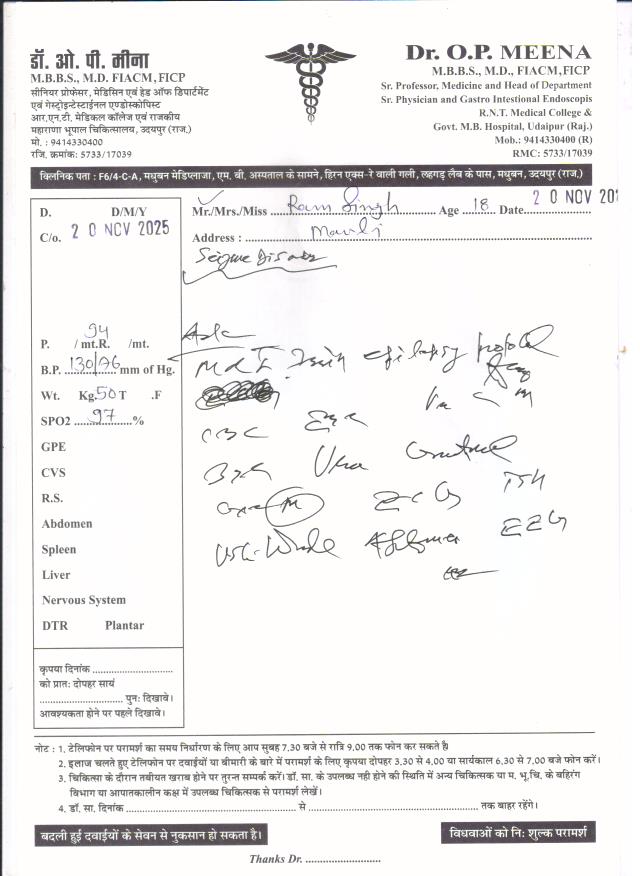 डॉ. ओ. पी. मीना
M.B.B.S., M.D. FIACM, FICP
सीनियर प्रोफेसर, मेडिसिन एवं हेड ऑफ डिपार्टमेंट
एवं गेस्ट्रोइन्टेस्टाईनल एण्डोस्कोपिस्ट
आर.एन.टी. मेडिकल कॉलेज एवं राजकीय
महाराणा भूपाल चिकित्सालय, उदयपुर (राज.)
मो. : 9414330400
रजि. क्रमांक: 5733/17039
Dr. O.P. MEENA
M.B.B.S., M.D., FIACM,FICP
Sr. Professor, Medicine and Head of Department
Sr. Physician and Gastro Intestional Endoscopis
R.N.T. Medical College &
Govt. M.B. Hospital, Udaipur (Raj.)
Mob.: 9414330400 (R)
RMC: 5733/17039
क्लिनिक पता : F6/4-C-A, मधुबन मेडिप्लाजा, एम. बी. अस्पताल के सामने, हिरन एक्स-रे वाली गली, लहगड़ लैब के पास, मधुबन, उदयपुर (राज.)
D. D/M/Y
C/o. 20 NOV 2025
Mr./Mrs./Miss Ram Singh Age 18 Date 20 NOV
Address : Mavli
Seizure Disorder
P. 94 /mt.R. /mt.
B.P. 130/76 mm of Hg.
Wt. Kg. 50 T .F
SPO2 97 %
GPE
CVS
R.S.
Abdomen
Spleen
Liver
Nervous System
DTR Plantar
Adv
epilepsy protocol
CBC
ECG TSH
USG Whole Abdomen EEG
कृपया दिनांक
को प्रातः दोपहर सायं
पुनः दिखावे।
आवश्यकता होने पर पहले दिखावें।
नोट : 1. टेलिफोन पर परामर्श का समय निर्धारण के लिए आप सुबह 7.30 बजे से रात्रि 9.00 तक फोन कर सकते है।
2. इलाज चलते हुए टेलिफोन पर दवाईयों या बीमारी के बारे में परामर्श के लिए कृपया दोपहर 3.30 से 4.00 या सायंकाल 6.30 से 7.00 बजे फोन करें।
3. चिकित्सा के दौरान तबीयत खराब होने पर तुरन्त सम्पर्क करें। डॉ. सा. के उपलब्ध नही होने की स्थिति में अन्य चिकित्सक या म. भू.चि. के बहिरंग
विभाग या आपातकालीन कक्ष में उपलब्ध चिकित्सक से परामर्श लेखें।
4. डॉ. सा. दिनांक से तक बाहर रहेंगे।
बदली हुई दवाईयों के सेवन से नुकसान हो सकता है।
विधवाओं को निः शुल्क परामर्श
Thanks Dr.